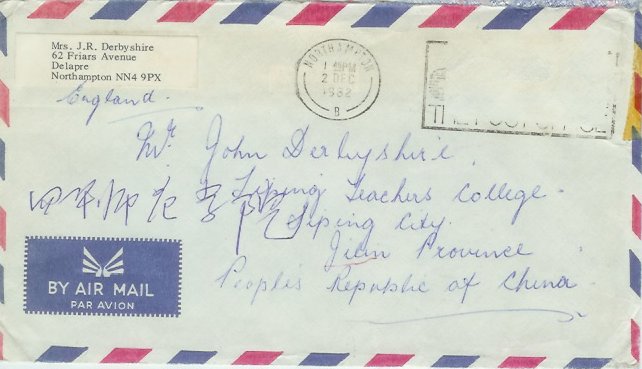 Mrs. J.R. Derbyshire
62 Friars Avenue
Delapre
Northampton NN4 9PX
England.
NORTHAMPTON
1 45PM
2 DEC
1982
B
THE POST OFFICE
Mr. John Derbyshire,
Siping Teachers College.
四平师
Siping City.
Jilin Province
People's Republic of China
BY AIR MAIL
PAR AVION